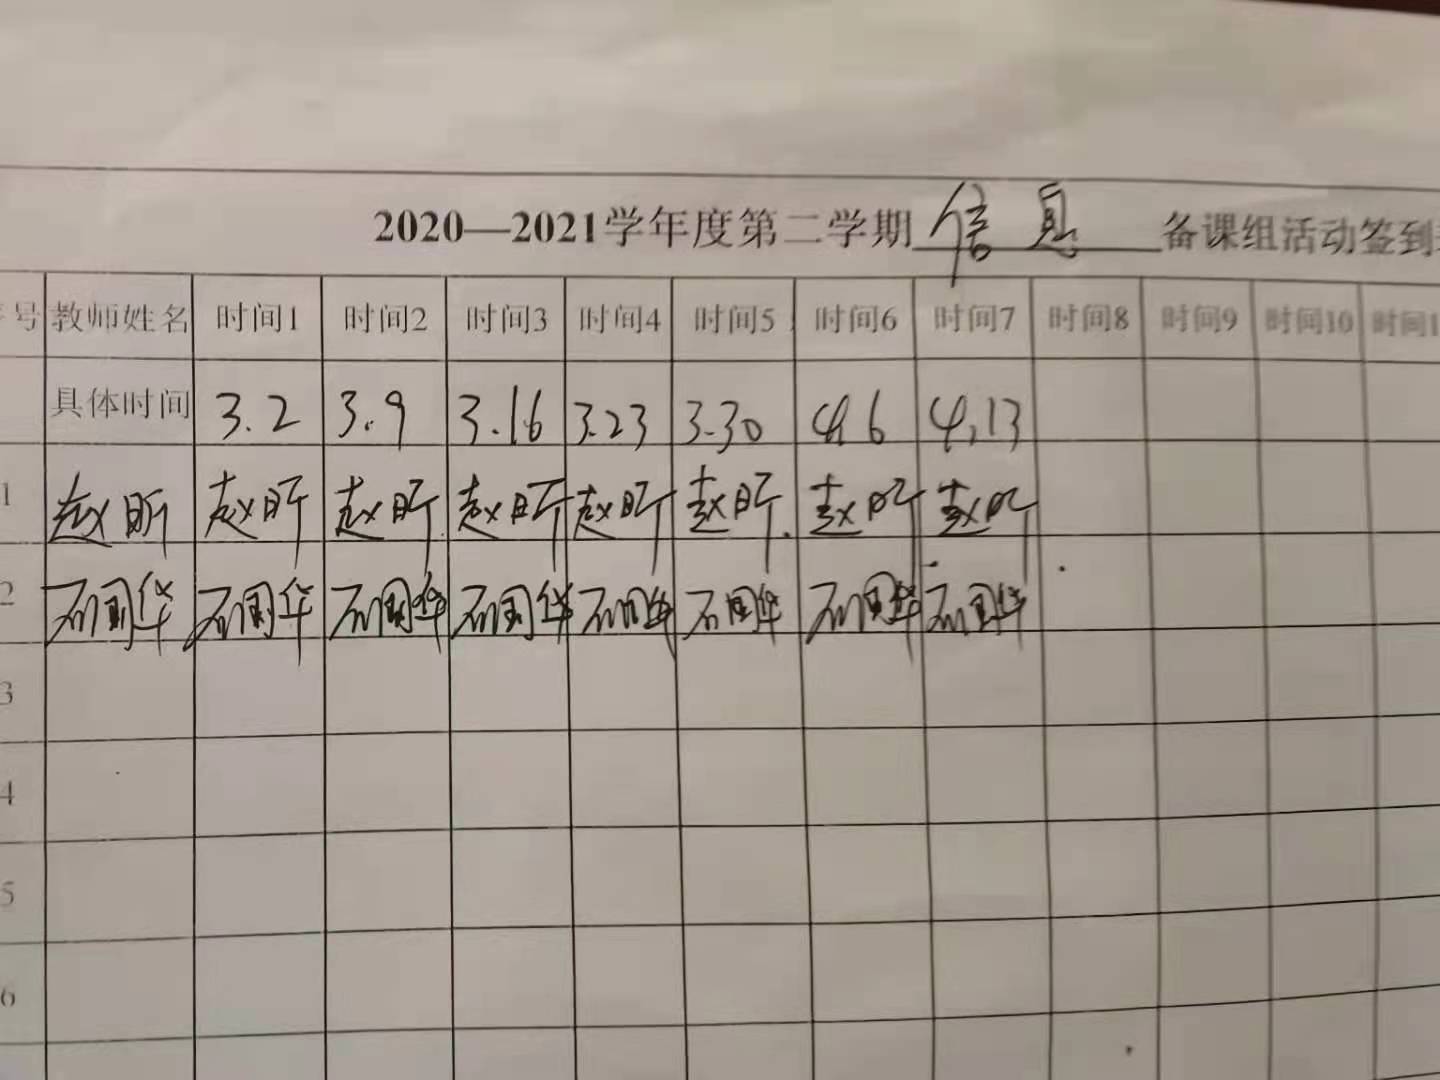 2020—2021学年度第二学期 信息 备课组活动签到
号 教师姓名 时间1 时间2 时间3 时间4 时间5 时间6 时间7 时间8 时间9 时间10 时间1
具体时间 3.2 3.9 3.16 3.23 3.30 4.6 4.13
1 赵昕 赵昕 赵昕 赵昕 赵昕 赵昕 赵昕 赵昕
2 石国华 石国华 石国华 石国华 石国华 石国华 石国华 石国华
3
4
5
6